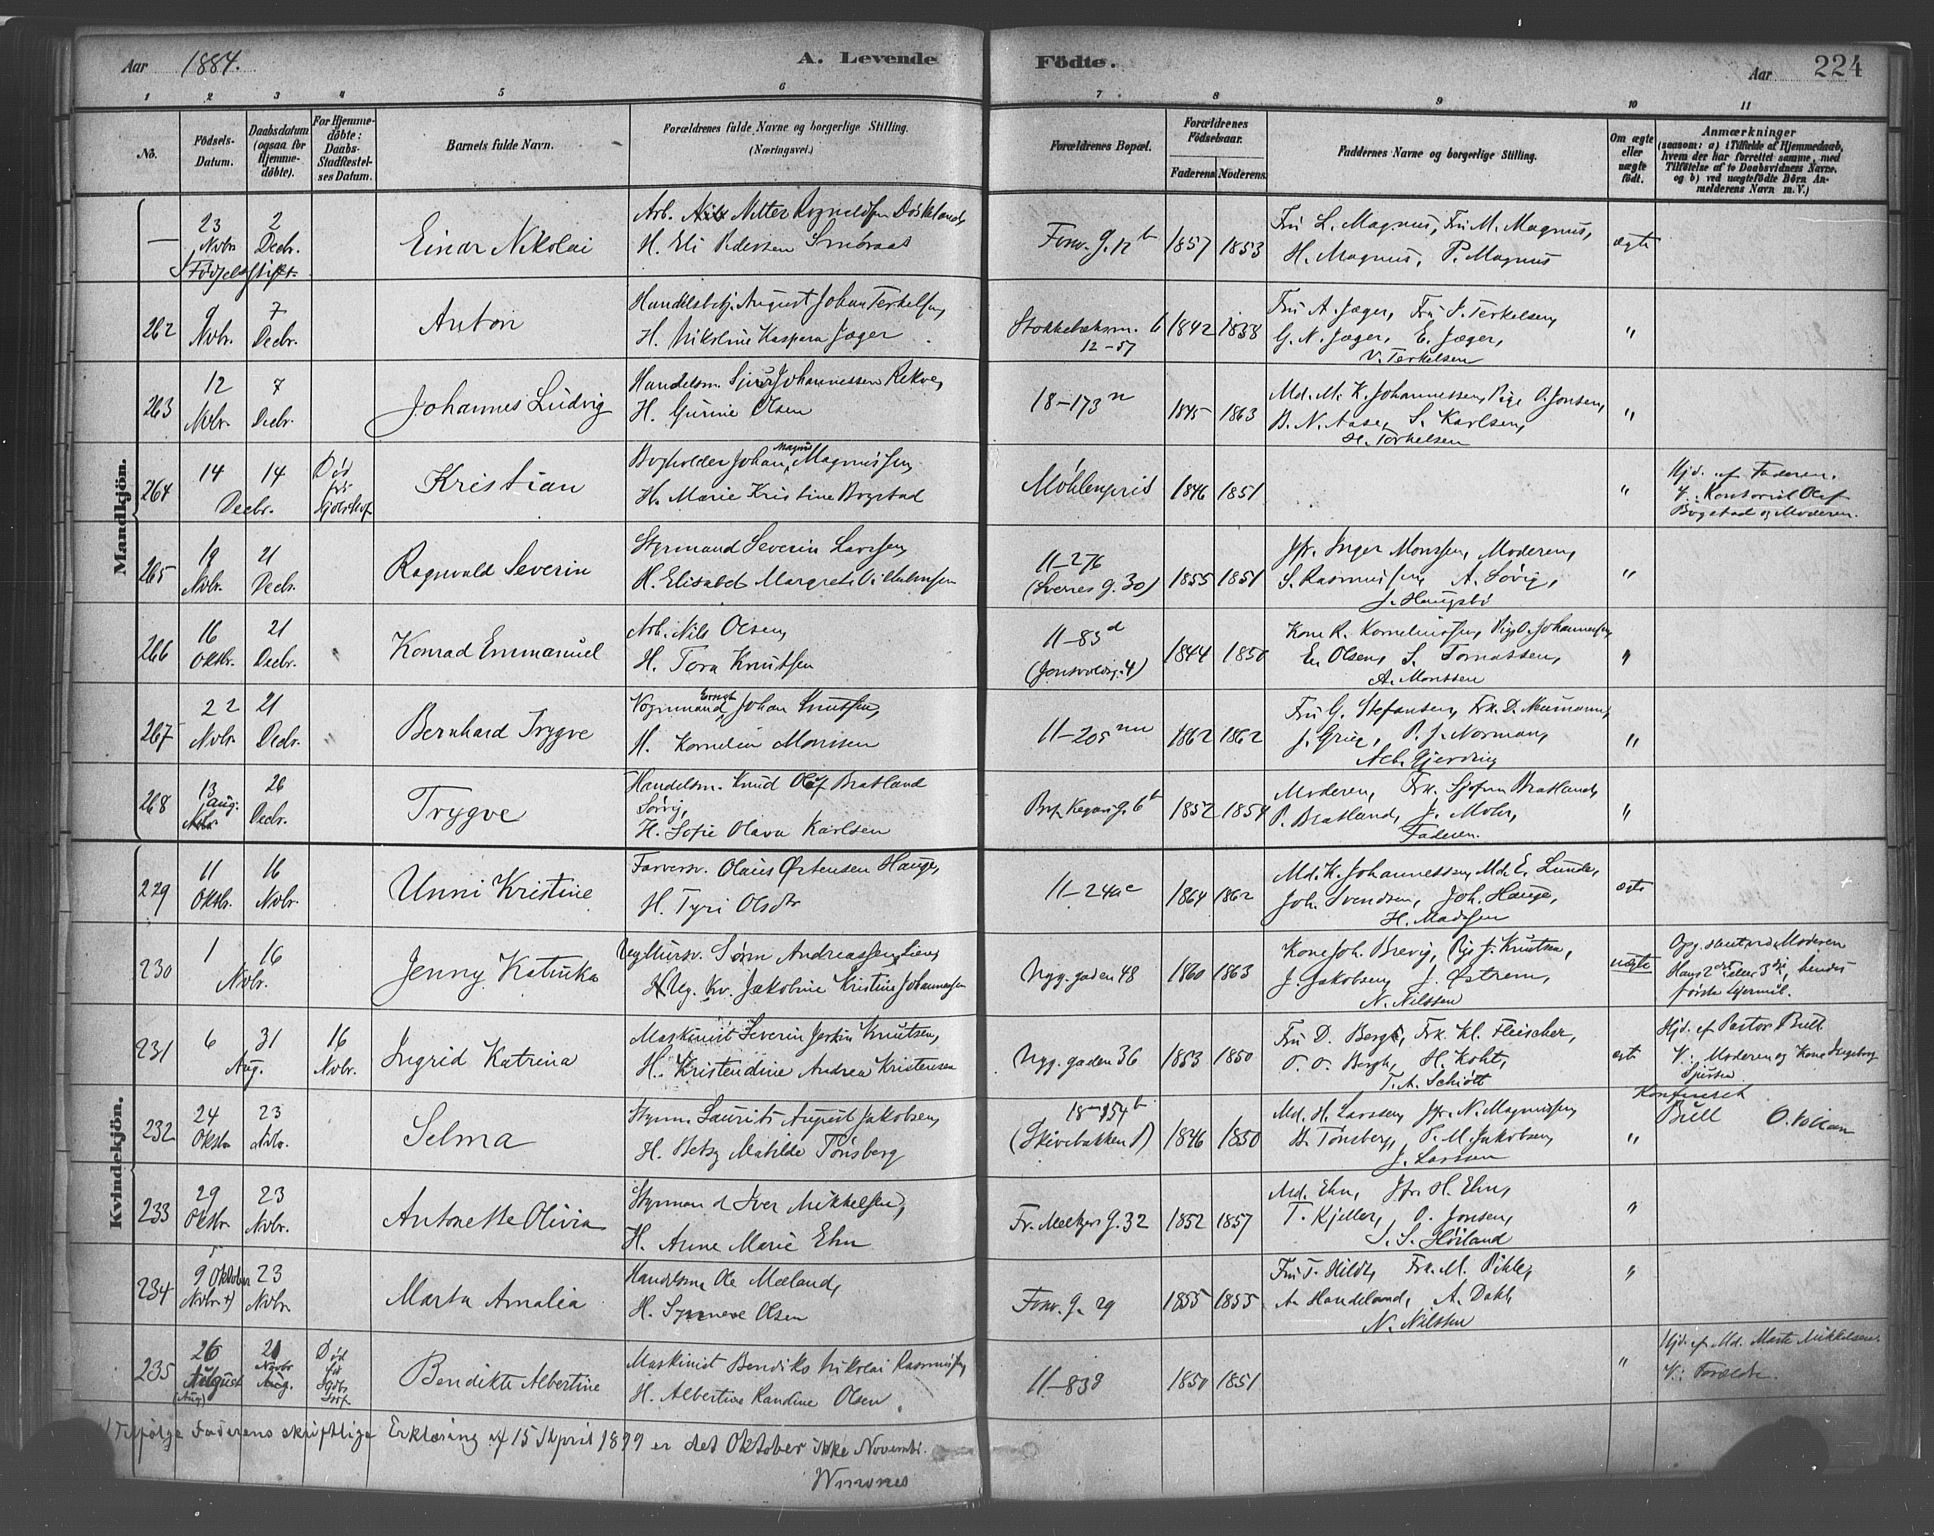 Aar 1884. A. Levende Födte. Aar 224
1 2 3 4 5 6 7 8 9 10 11
No.
Födsels-Datum.
Daabsdatum (ogsaa for Hjemme-döbte).
For Hjemme-döbte: Daabs-Stadfæstel-ses Datum.
Barnets fulde Navn.
Forældrenes fulde Navne og borgerlige Stilling. (Næringsvei.)
Forældrenes Bopæl.
Forældrenes Födselsaar.
Faderens Moderens
Faddernes Navne og borgerlige Stilling.
Om ægte eller uægte födt.
Anmærkninger
(saasom: a) i Tilfælde af Hjemmedaab, hvem der har forrettet samme, med Tilföielse af to Daabsvidners Navne, og b) ved uægtefödte Börn An-melderens Navn m. V.)
Mandkjön.
— 23 Novbr. 2 Decbr.
Födselsstift.
Einar Nikolai
Arb. Nitter
H. Eli Pedersen
Fosw. g. 12 b 1857 1853
Fru L. Magnus, Fru M. Magnus,
H. Magnus, P. Magnus
ægte
262 9 Novbr. 7 Decbr. Anton
Handelsbetj. August Johan Terkelsen,
H. Nikoline Kaspara Jæger
12-57 1842 1838
Fru A. Jæger, Fru S. Terkelsen,
G. N. Jæger, E. Jæger,
V. Terkelsen
"
263 12 Novbr. 7 Decbr. Johannes Ludvig
Handelsm. Sjur Johannessen Rekve,
H. Gurine Olsen
18-173 n 1845 1863
Md. M. K. Johannessen, Pige O. Jonsen,
B. N. Aase, S. Karlsen,
H. Torkelsen
"
264 14 14 Decbr. Död
Kristian
Bogholder Johan Magnus Magnussen,
H. Marie Kristine Bogstad
Möhlenpris 1846 1851
"
Hjd. af Faderen.
V: Kontorist Olaf
Bogstad og Moderen.
265 19 Novbr. 21 Decbr. Ragnvald Severin
Styrmand Severin Larssen,
H. Elisabet Margrete Vilhelmsen
11-276
(Sverres g. 30) 1855 1851
Jfr. Inger Monssen, Moderen,
S. Rasmussen, A. Sövig,
J. Haugsbö
"
266 16 Oktbr. 21 Decbr. " Konrad Emmanuel
Arb. Nils Olsen,
H. Tora Knutsen
11-83 d
(Jonsvoldsg. 4) 1844 1850
Kone R. Korneliussen, Pige O. Johannessen,
E. Olsen, S. Tomassen,
A. Monssen
"
267 22 Novbr. 21 Decbr. Bernhard Trygve
Vognmand Ernst Johan Knutsen,
H. Kornelia Monsen
11-205 nn 1862 1862
Fru G. Stefansen, Frk. D. Neumann,
J. Grieg, P. J. Norman,
Alb. Gjerding
"
268 13 aug. 26 Decbr. Trygve
Handelsm. Knud Olaf Bratland
Sövig,
H. Sofie Olava Karlsen
g. 6 b 1852 1854
Moderen, Frk. Bratland,
P. Bratland, J. Mohr,
Faderen.
"
Kvindekjön.
229 11 Oktbr. 16 Novbr. Unni Kristine
Farversv. Olaus Östensen Hauge,
H. Tyri Olsdtr
11-24 a c 1864 1862
Md. K. Johannessen, Md. E. Lunde,
Joh. Svendsen, Joh. Hauge,
H. Madssen
ægte
230 1 16 Novbr. Jenny Katinka
Sörn Andreassen Lien,
Ug. Kv. Jakobine Kristine Johannessen
Nyg. gaden 48 1860 1863
Kone Joh. Brevig, Pige J. Knutsen,
J. Jakobsen, J. Östrem,
N. Nilssen
uægte
Opg. skutet ved Moderen
Hans 2det eller 3die, hendes
første Leiermål.
231 6 31 Aug. 16 Novbr. Ingrid Katrina
Maskinist Severin Knutsen,
H. Kristendine Andrea Kristensen
Nyg. gaden 36 1853 1850
Fru D. Bergh, Frk. Kl. Fleischer,
O. O. Bergh, H. Koht,
T. A. Schiött
ægte
Hjd. af Pastor Bull
V: Moderen og Kone Ingeborg
232 24 Oktbr. 23 Novbr. Selma
Styrm. Laurits August Jakobsen,
H. Betsy Matilde Tönsberg
18-954 b
(Skivebakken 1) 1846 1850
Md. H. Larssen, Jfr. N. Magnussen,
H. Tönsberg, P. M. Jakobsen,
J. Larsson
"
Konfereret
Bull O. Volian
233 29 Oktbr. 23 Novbr. Antonette Olivia
Styrmand Iver Mikkelsen,
H. Anne Marie Ehn
Fr. Meltzers g. 32 1852 1857
Md. Ehn, Jfr. H. Ehn,
T. Kjeller, O. Jonsen,
S. S. Höiland
"
234 9 Oktober Novbr +) 23 Novbr. Marta Amalia
Handelsm. Ole Mæland,
H. Synneve Olsen
Fosw. g. 29 1855 1855
Fru T. Hildt, Frk. M. Pihl,
A. Handeland, A. Dahl,
N. Nilssen
"
235 26 August (Aug) 21 Novbr Aug. Död
Bendikte Albertine
Maskinist Bendiks Nikolai Rasmussen,
H. Albertine Randine Olsen.
11-83 g 1850 1851
"
Hjd. af Md. Marte Mikkelsen.
V: Forældre.
+) Tilfölge Faderens skriftlige Erklæring af 15 April 1899 er det Oktober ikke Novembr.